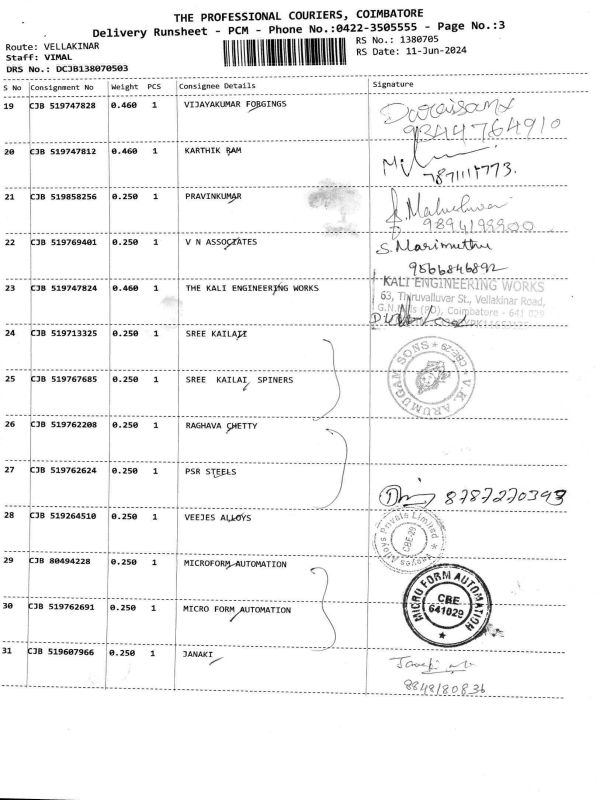 THE PROFESSIONAL COURIERS, COIMBATORE
Delivery Runsheet - PCM - Phone No.:0422-3505555 - Page No.:3
Route: VELLAKINAR
RS No.: 1380705
Staff: VIMAL
RS Date: 11-Jun-2024
DRS No.: DCJB138070503
S No Consignment No Weight PCS Consignee Details Signature
19 CJB 519747828 0.460 1 VIJAYAKUMAR FORGINGS
9344764910
20 CJB 519747812 0.460 1 KARTHIK RAM
21 CJB 519858256 0.250 1 PRAVINKUMAR
9894199900
22 CJB 519769401 0.250 1 V N ASSOCIATES S. Marimuthu
9566846892
23 CJB 519747824 0.460 1 THE KALI ENGINEERING WORKS
KALI ENGINEERING WORKS
63, Thiruvalluvar St., Vellakinar Road,
Coimbatore - 641 029
24 CJB 519713325 0.250 1 SREE KAILAJI
V.K. ARUMUGAM SONS * CBE-29 *
25 CJB 519767685 0.250 1 SREE KAILAI SPINERS
26 CJB 519762208 0.250 1 RAGHAVA CHETTY
27 CJB 519762624 0.250 1 PSR STEELS
8787270393
28 CJB 519264510 0.250 1 VEEJES ALLOYS
Alloys Private Limited
CBE-29
29 CJB 80494228 0.250 1 MICROFORM AUTOMATION
MICRO FORM AUTOMATION
CBE
641029
30 CJB 519762691 0.250 1 MICRO FORM AUTOMATION
31 CJB 519607966 0.250 1 JANAKI